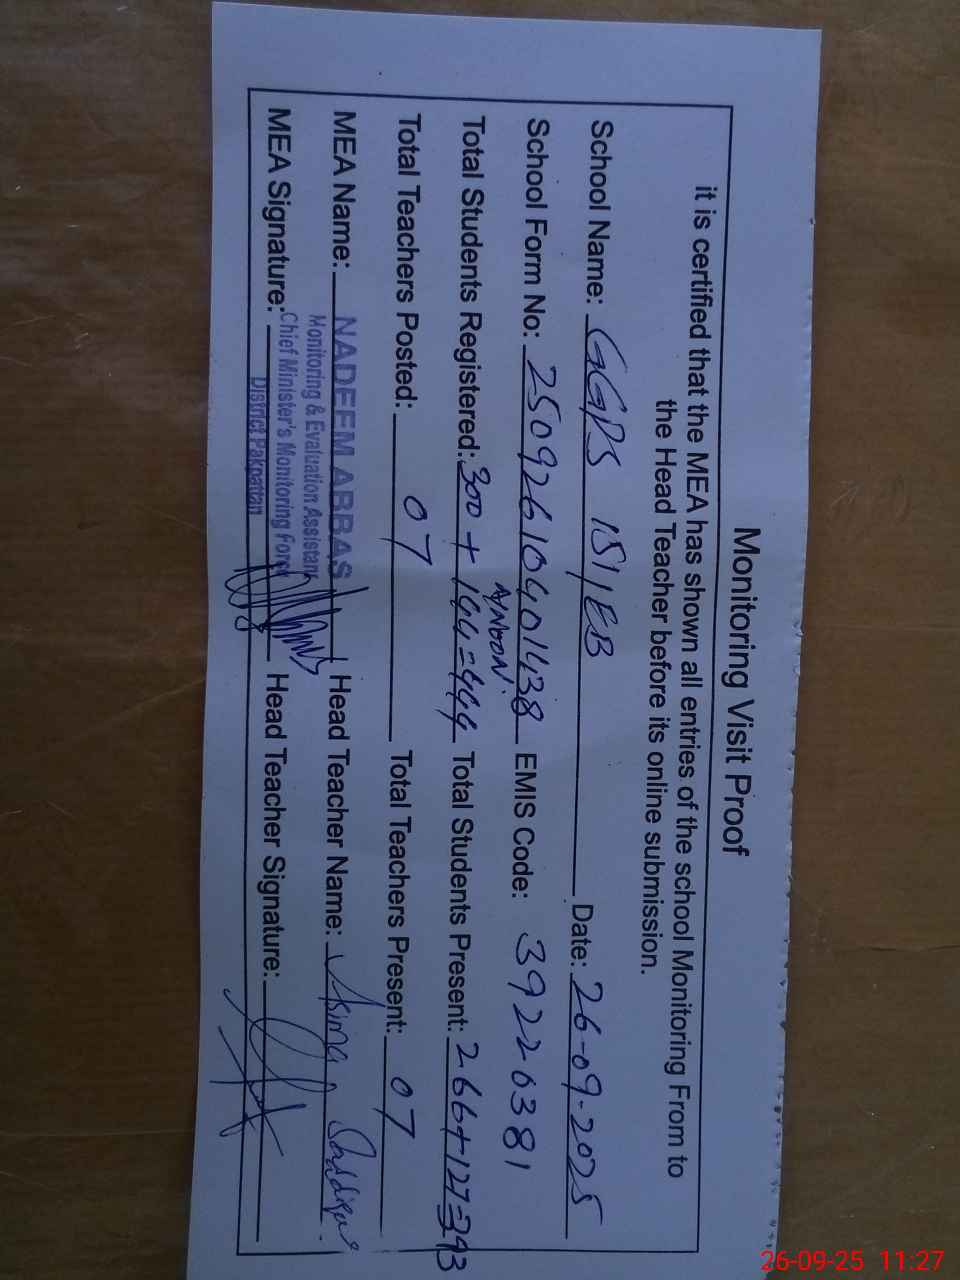 Monitoring Visit Proof
it is certified that the MEA has shown all entries of the school Monitoring From to
the Head Teacher before its online submission.
School Name: GGPS 151/EB Date: 26-09-2025
School Form No: 25092610401438 EMIS Code: 39220381
A/NOON
Total Students Registered: 300 + 144 = 444 Total Students Present: 266+127=393
Total Teachers Posted: 07 Total Teachers Present: 07
MEA Name: NADEEM ABBAS Head Teacher Name: Asima Saddique
Monitoring & Evaluation Assistant
MEA Signature: Chief Minister's Monitoring Force Head Teacher Signature:
District Pakpattan
26-09-25 11:27